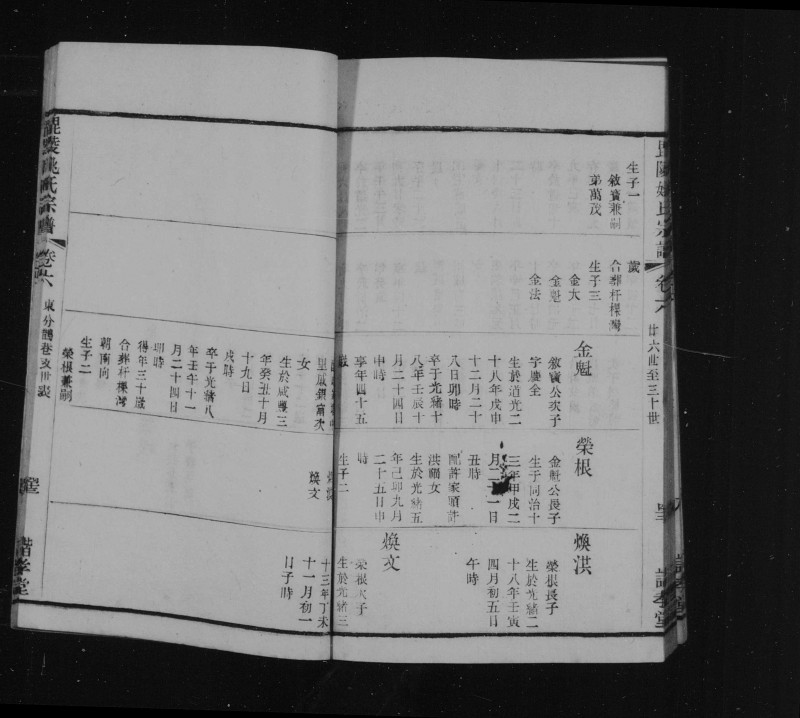 廿六世至三十世
生子一
敘寶兼嗣
弟萬茂
歲
合葬杆樑灣
生子三
金大
金魁
金法
金魁
敘寶公次子
字慶全
生於道光二
十八年戊申
十二月二十
八日卯時
卒于光緒十
八年壬辰十
月二十四日
申時
享年四十五
榮根
金魁公長子
生于同治十
三年甲戌二
月二十一日
丑時
配許家頭許
洪珊女
生於光緒五
年己卯九月
二十五日申
時
生子二
煥淇
榮根長子
生於光緒二
十八年壬寅
四月初五日
午時
煥文
榮根次子
生於光緒三
十三年丁未
十一月初一
日子時
女
生於咸豐三
年癸丑十月
十九日
戌時
卒于光緒八
年壬午十一
月二十四日
卯時
得年三十歲
合葬杆樑灣
朝南向
生子二
榮根兼嗣
煥文